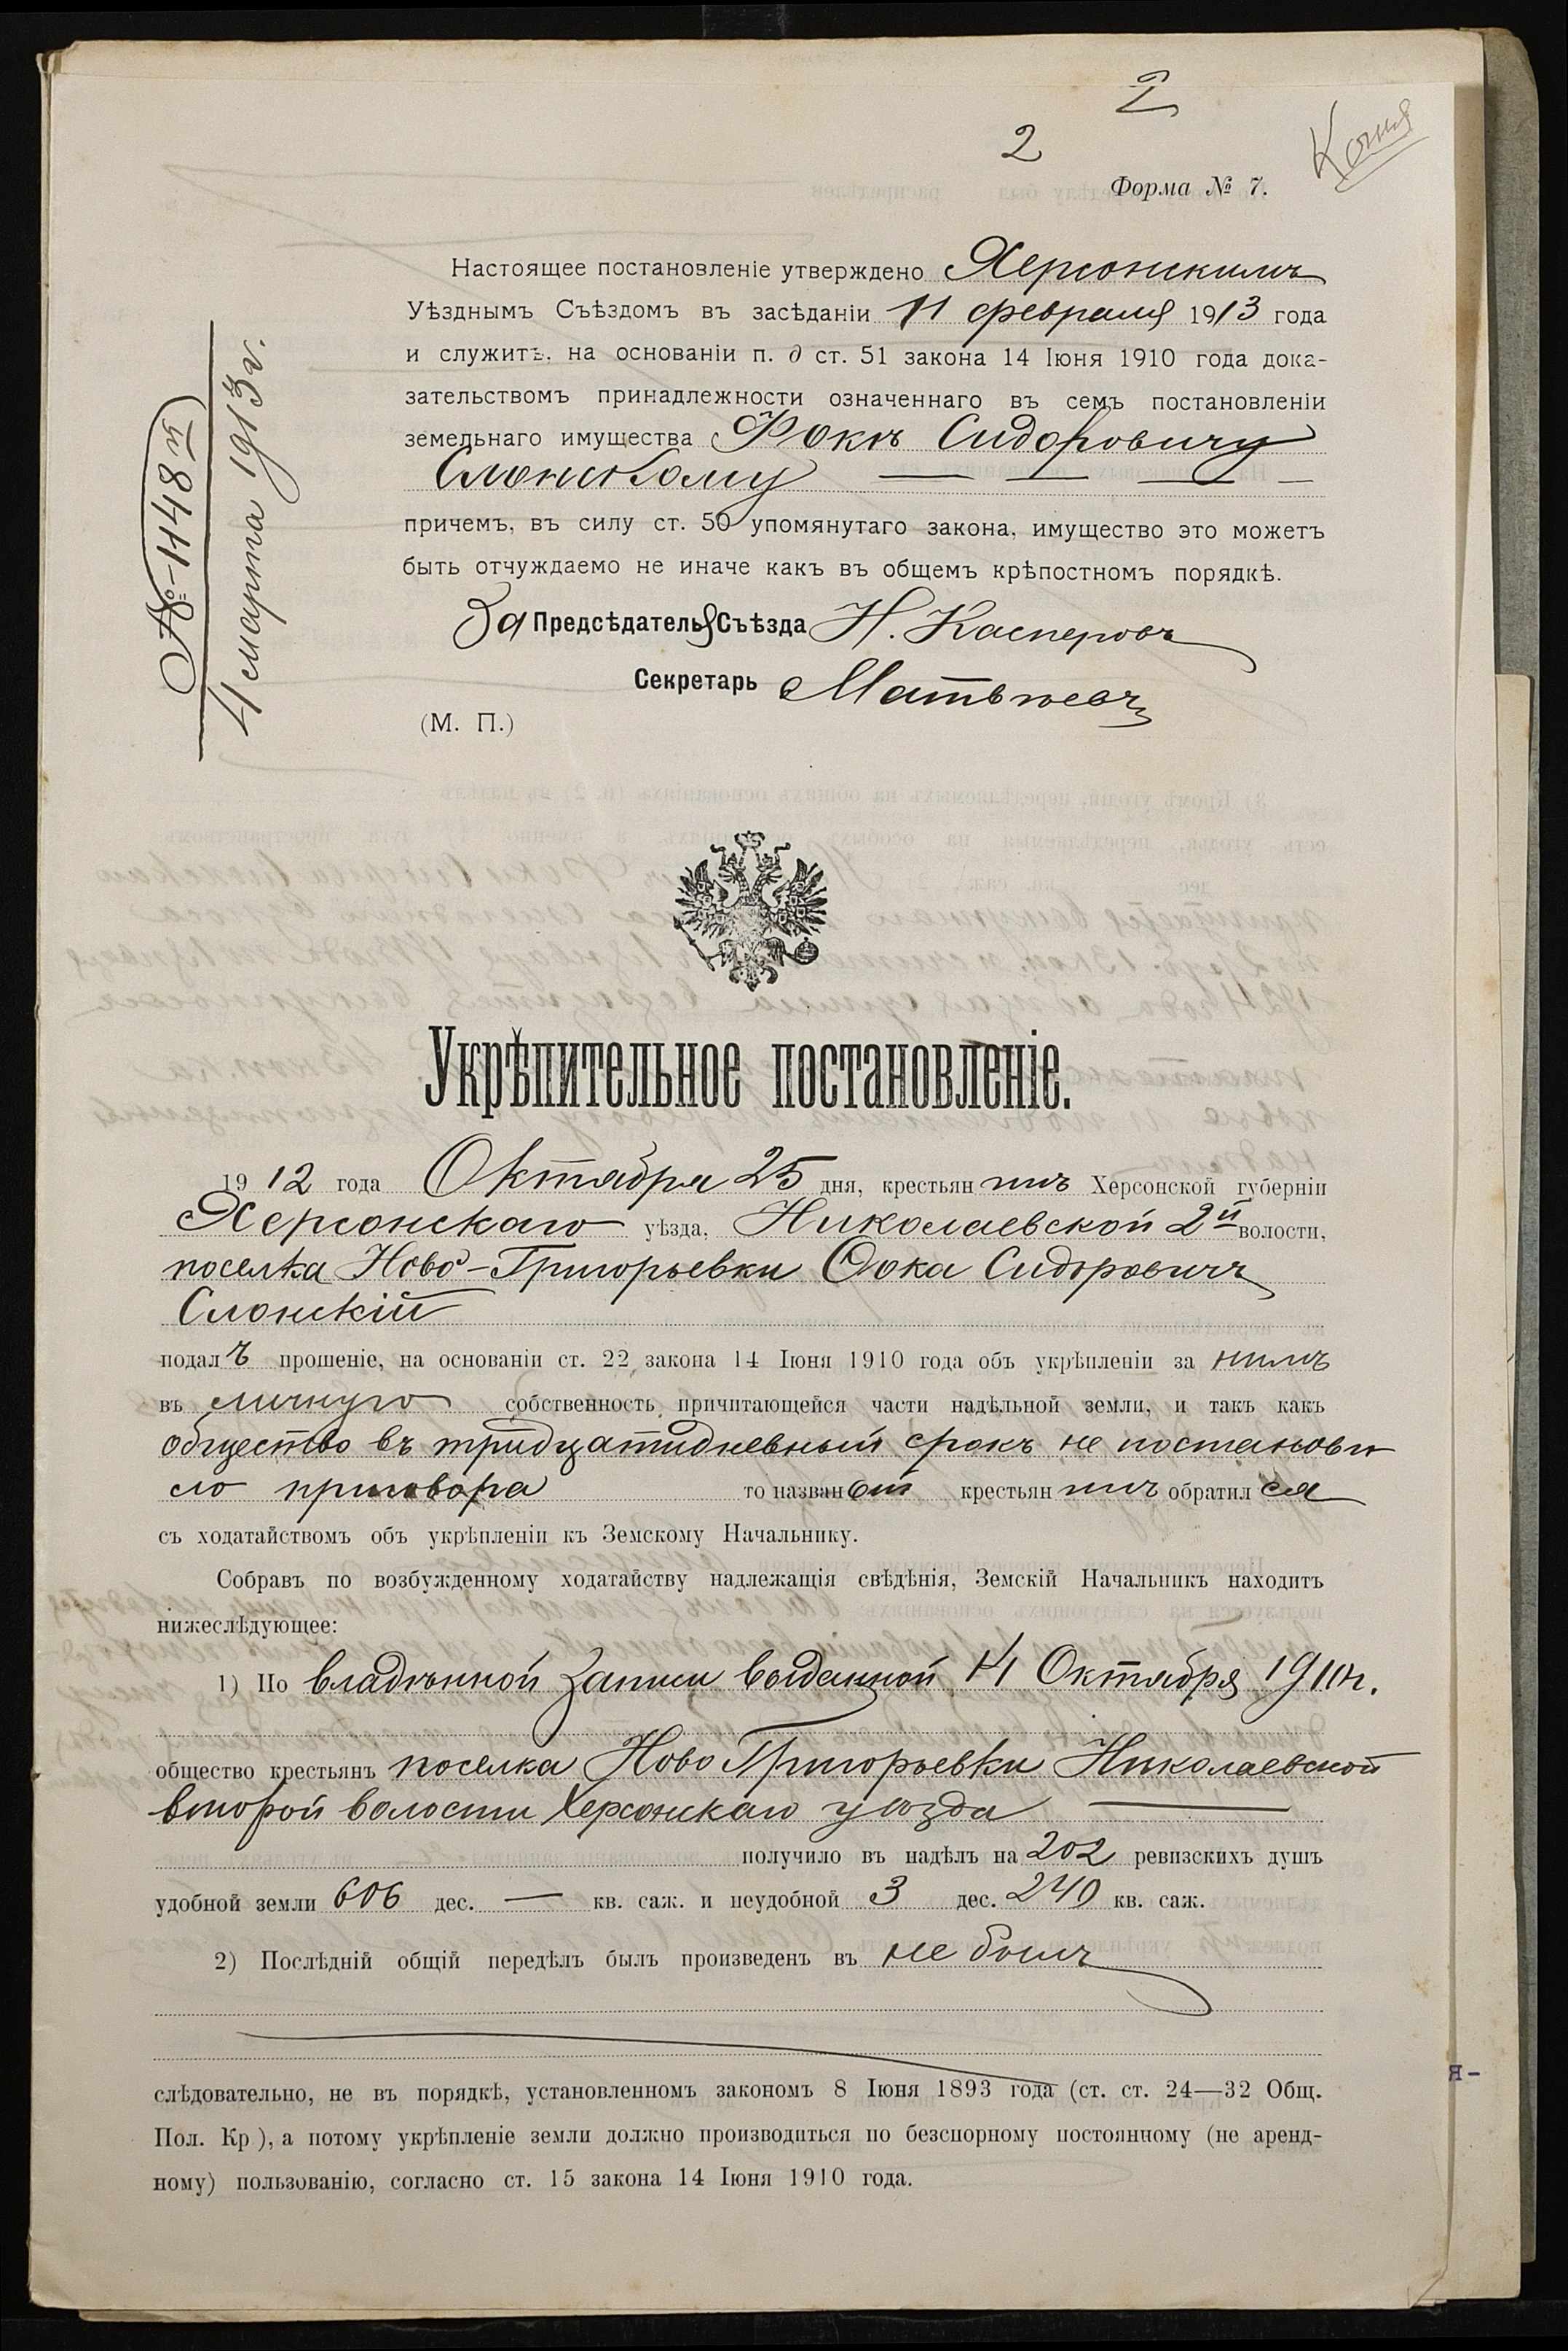 2
2
Копия
Форма № 7.
Настоящее постановленіе утверждено Херсонскимъ
Уѣзднымъ Съѣздомъ въ засѣданіи 11 февраля 1913 года
и служитъ, на основаніи п. д ст. 51 закона 14 Іюня 1910 года дока-
зательствомъ принадлежности означеннаго въ семъ постановленіи
земельнаго имущества Фокѣ Сидоровичу
Слонскому — — — —
причемъ, въ силу ст. 50 упомянутаго закона, имущество это можетъ
быть отчуждаемо не иначе какъ въ общемъ крѣпостномъ порядкѣ.
За Предсѣдателя Съѣзда Н. Касперовъ
Секретарь Матвѣевъ
(М. П.)
4 марта 1913 г.
Укрѣпительное постановленіе.
1912 года Октября 25 дня, крестьянинъ Херсонской губерніи
Херсонскаго уѣзда, Николаевской 2й волости,
поселка Ново-Григорьевки Фока Сидоровичъ
Слонскій
подалъ прошеніе, на основаніи ст. 22 закона 14 Іюня 1910 года объ укрѣпленіи за нимъ
въ личную собственность причитающейся части надѣльной земли, и такъ какъ
общество въ тридцатидневный срокъ не постанови
ло приговора то названный крестьянинъ обратился
съ ходатайствомъ объ укрѣпленіи къ Земскому Начальнику.
Собравъ по возбужденному ходатайству надлежащія свѣдѣнія, Земскій Начальникъ находитъ
нижеслѣдующее:
1) По владѣнной записи выданной 14 Октября
общество крестьянъ поселка Ново Григорьевки Николаевской
второй волости Херсонскаго уѣзда —
получило въ надѣлъ на 202 ревизскихъ душъ
удобной земли 606 дес. — кв. саж. и неудобной 3 дес. 240 кв. саж.
2) Послѣдній общій передѣлъ былъ произведенъ въ не былъ
слѣдовательно, не въ порядкѣ, установленномъ закономъ 8 Іюня 1893 года (ст. ст. 24—32 Общ.
Пол. Кр), а потому укрѣпленіе земли должно производиться по безспорному постоянному (не аренд-
ному) пользованію, согласно ст. 15 закона 14 Іюня 1910 года.